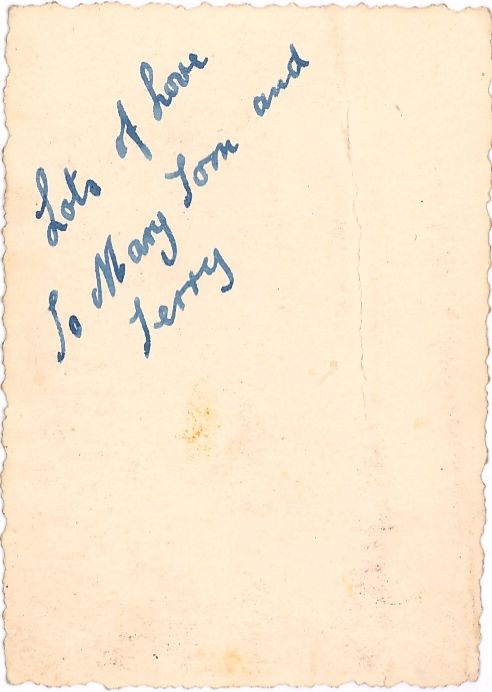 Lots of Love
To Mary Tom and
Terry